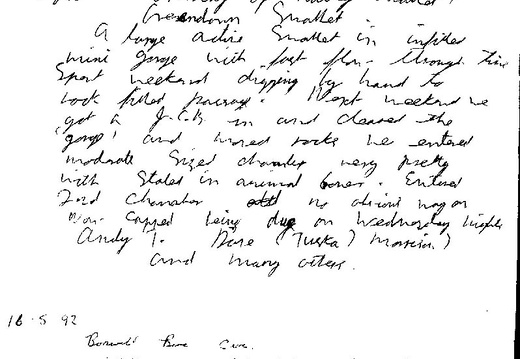 Greendown Swallet
A large active Swallet in infilled
mini gorge with fast flow through time
Spent weekend digging by hand to
rock filled passage. Next weekend we
got a J.C.B. in and cleared the
'gorge' and moved rocks we entered
moderate sized chamber very pretty
with Stals in animal bones. Entered
2nd Chamber no obvious way on
Now Capped being dug on Wednesday nights
Andy T. Dave (Tuska) Morrison)
and many others.
16 . 5 92
Cave.